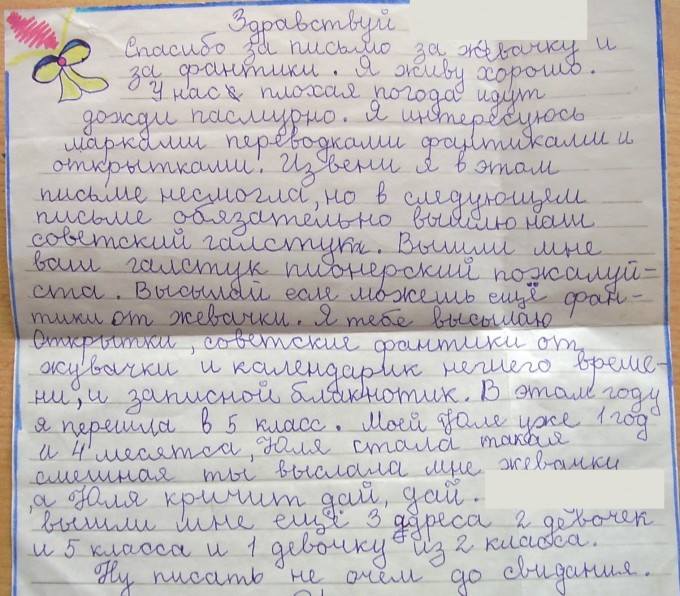 Здравствуй
Спасибо за письмо за жевачку и
за фантики. Я живу хорошо.
У нас плохая погода идут
дожди пасмурно. Я интересуюсь
марками переводками фантиками и
открытками. Извени я в этом
письме несмогла, но в следующем
письме обязательно вышлю наш
советский галстук. Вышли мне
ваш галстук пионерский пожалуй-
ста. Высылай если можешь ещё фан-
тики от жевачки. Я тебе высылаю
Открытки, советские фантики от
жувачки и календарик нешего време-
ни, и записной блакнотик. В этом году
я перешла в 5 класс. Моей Юле уже 1 год
и 4 месятса, Юля стала такая
смешная ты выслала мне жевачки
,а Юля кричит дай, дай.
вышли мне ещё 3 адреса 2 девочек
и 5 класса и 1 девочку из 2 класса.
Ну писать не очем до свидания.